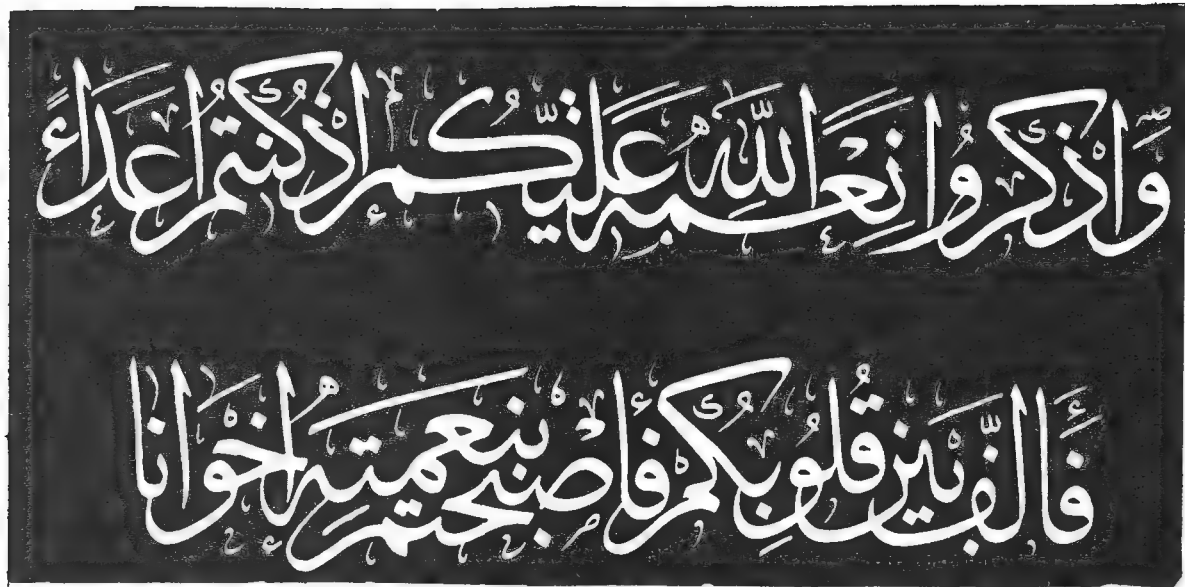 وَاذْكُرُوا نِعْمَةَ اللّٰهِ عَلَيْكُمْ اِذْ كُنْتُمْ اَعْدَاءً
فَاَلَّفَ بَيْنَ قُلُوبِكُمْ فَاَصْبَحْتُمْ بِنِعْمَتِهِ اِخْوَانًا